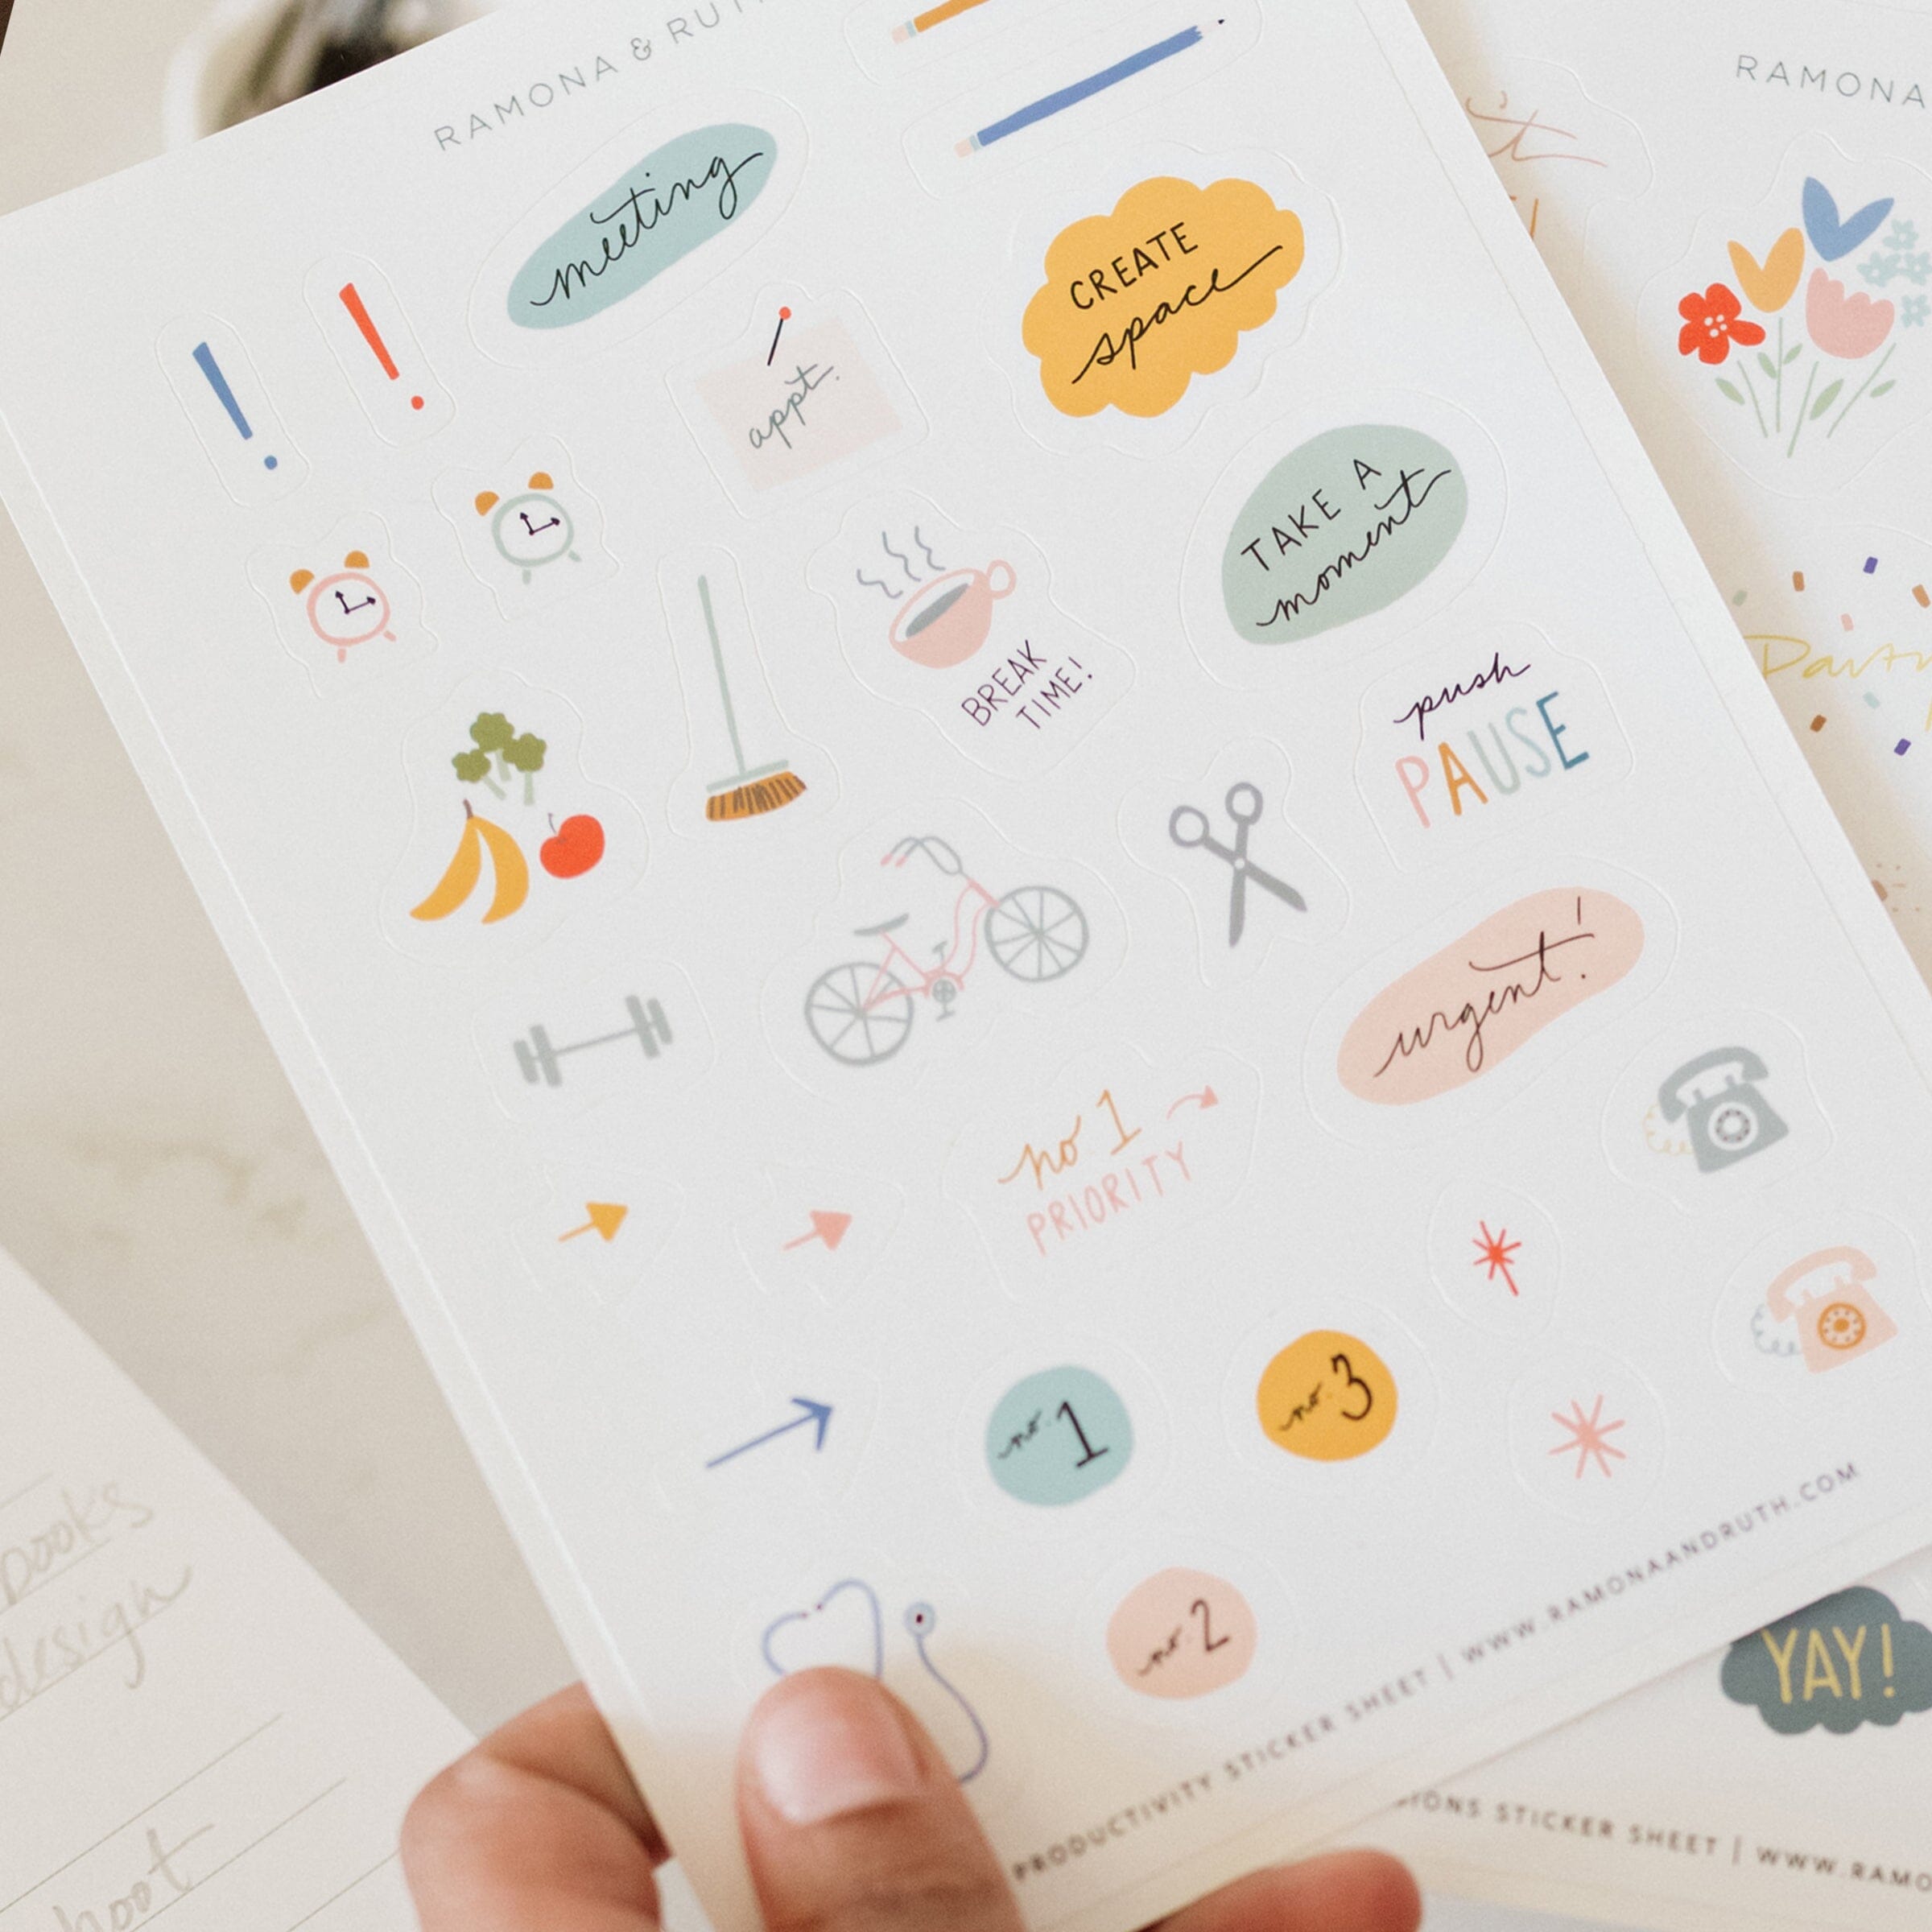 RAMONA & RUT
meeting
CREATE
space
appt.
TAKE A
moment
BREAK
TIME!
push
PAUSE
urgent!
no 1
PRIORITY
no. 1
no. 3
no. 2
PRODUCTIVITY STICKER SHEET | WWW.RAMONAANDRUTH.COM
RAMONA
YAY!
IONS STICKER SHEET | WWW.RAMO
books
design
hoot